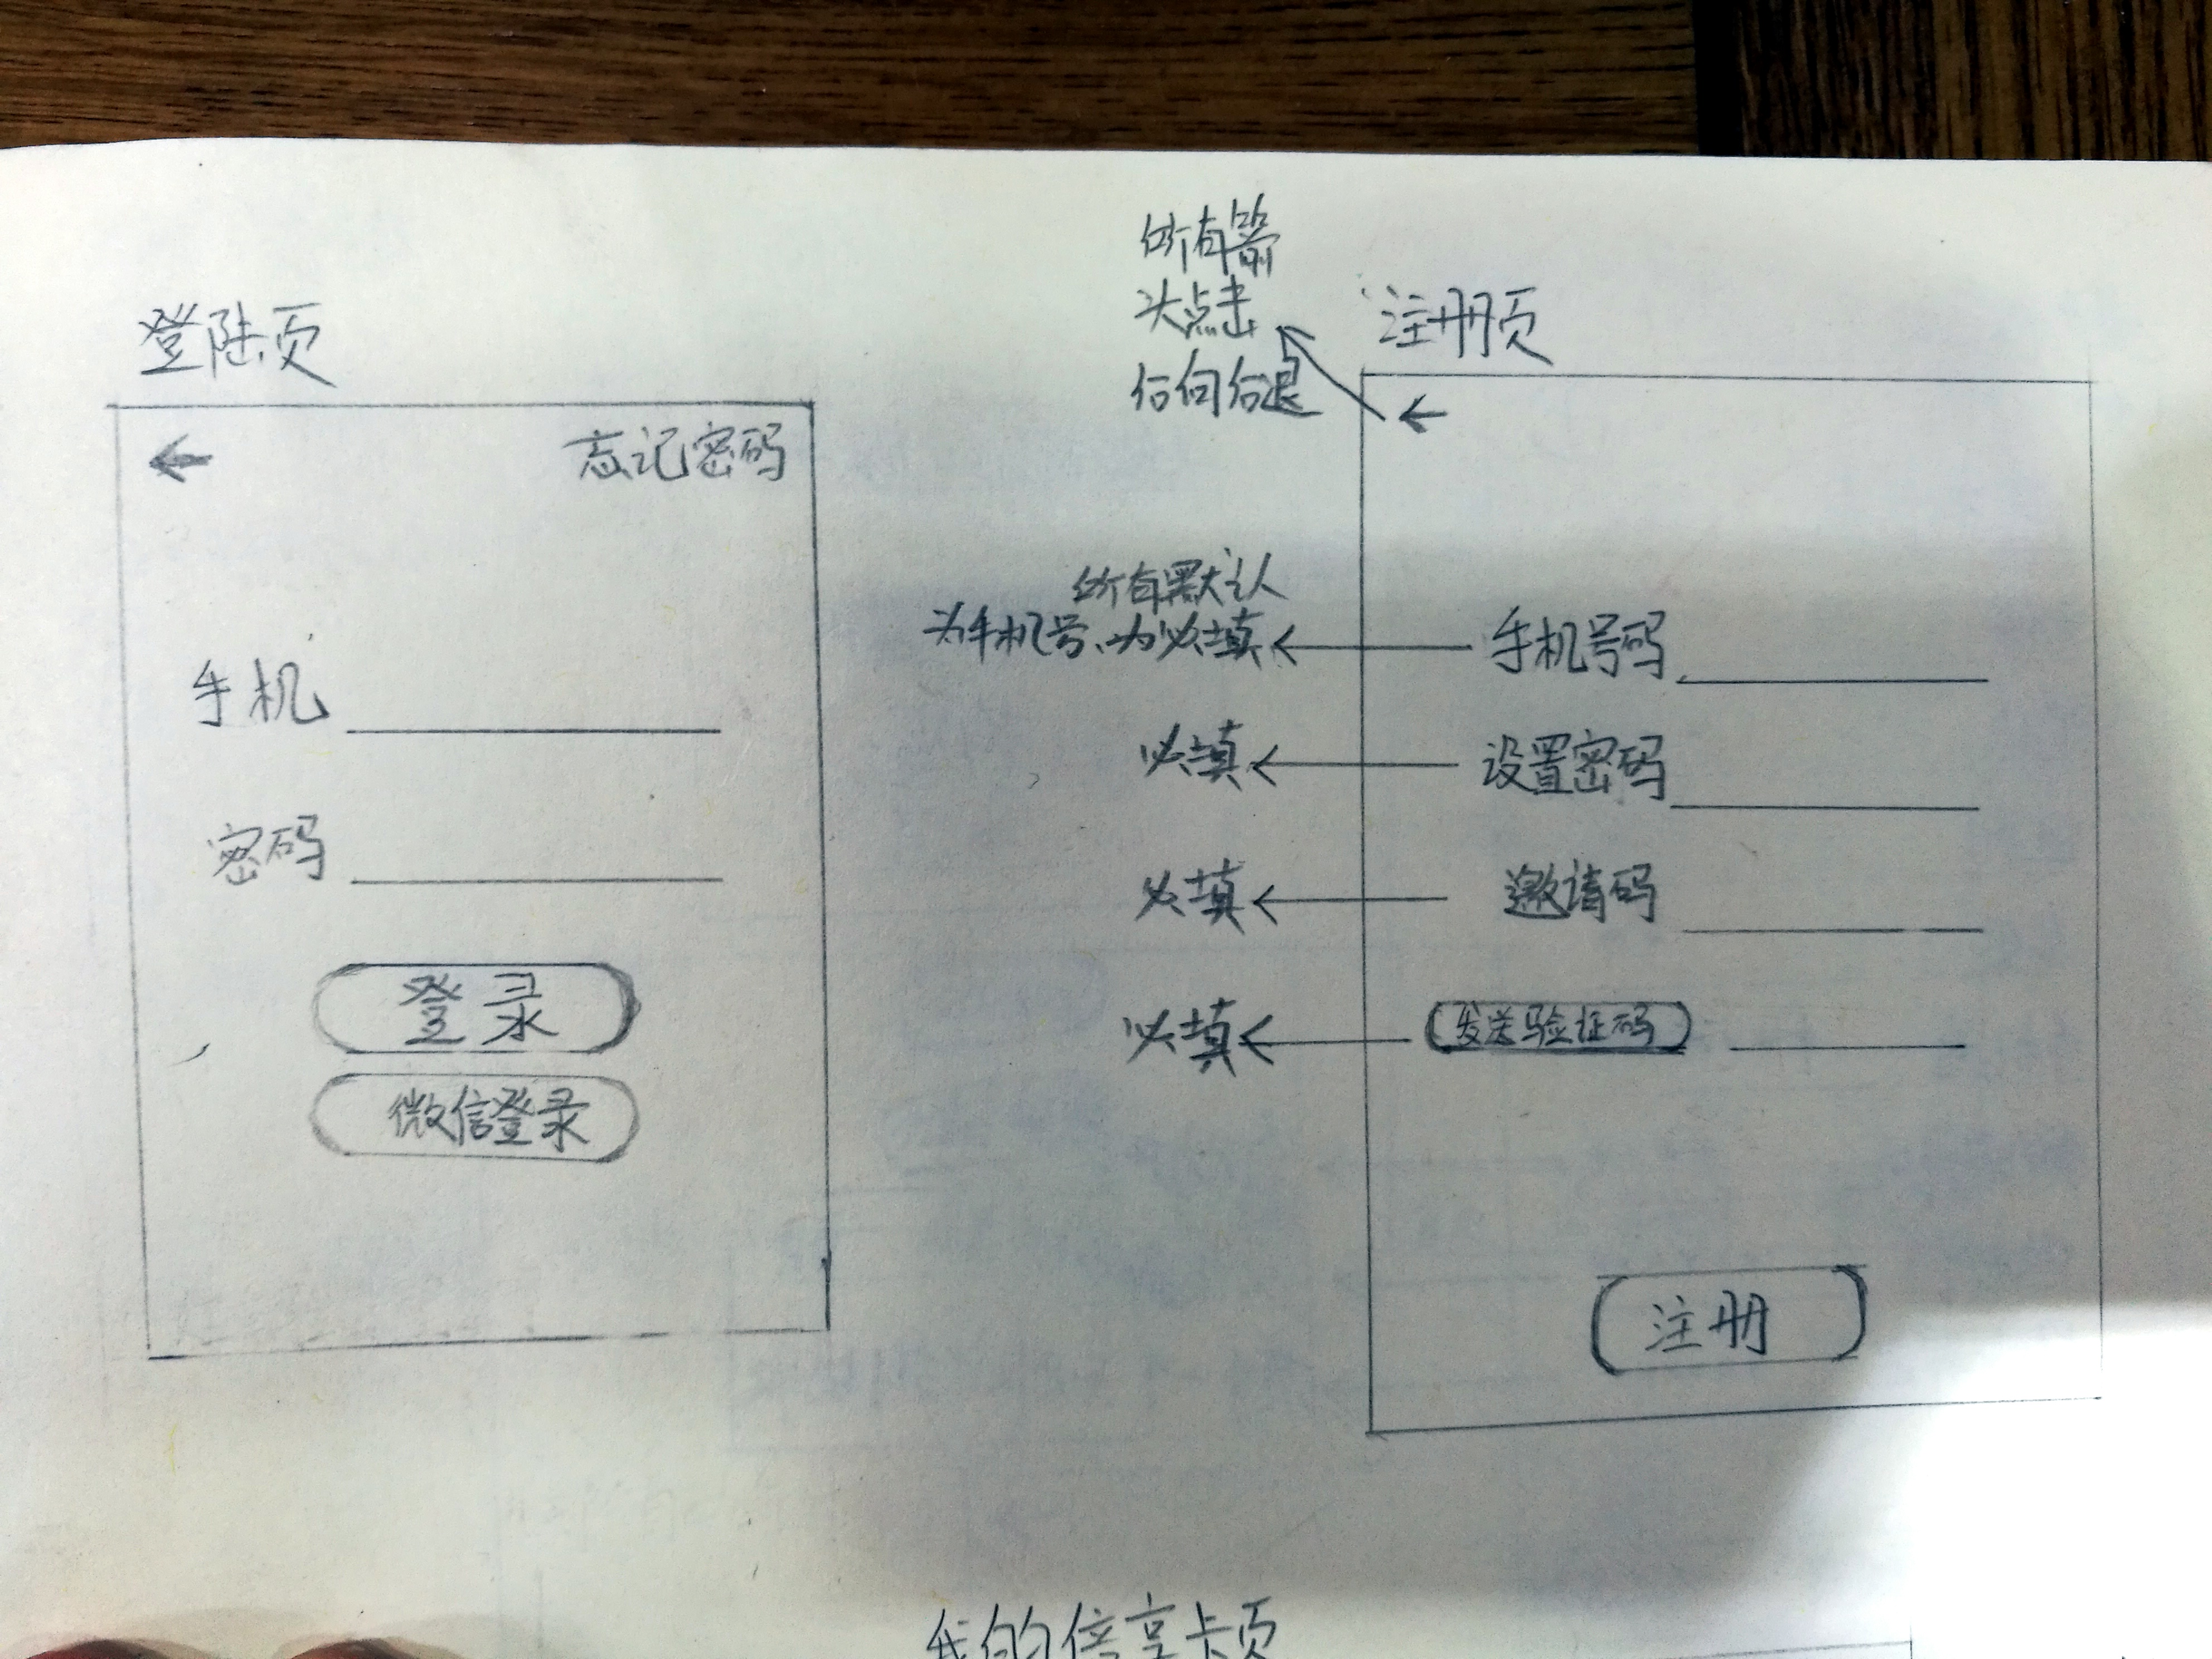 登陆页
忘记密码
手机
密码
登录
微信登录
所有箭
头点击
后向后退
注册页
所有默认
为手机号、为必填
手机号码
必填
设置密码
必填
邀请码
必填
发送验证码
注册
我的倍享卡页